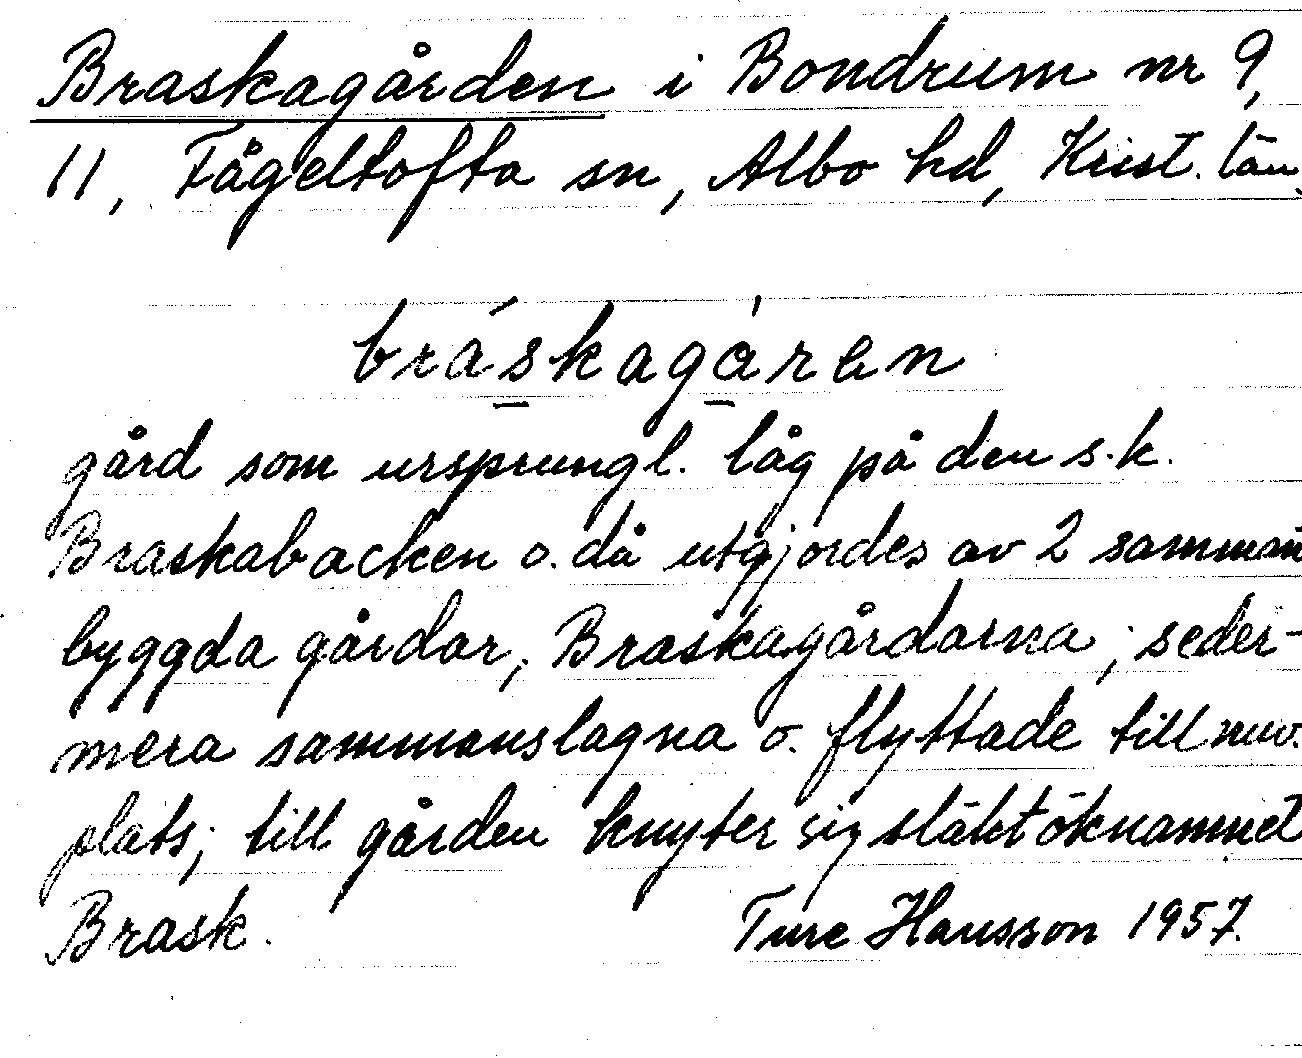 Braskagården i Bondrum nr 9,
11, Fågeltofta sn, Albo hd, Krist. län.
bráskagåren
gård som ursprungl. låg på den s.k.
Braskabacken o. då utgjordes av 2 samman
byggda gårdar, Braskagårdarna; seder-
mera sammanslagna o. flyttade till nuv.
plats; till gården knyter sig släktöknamnet
Brask. Ture Hansson 1957.